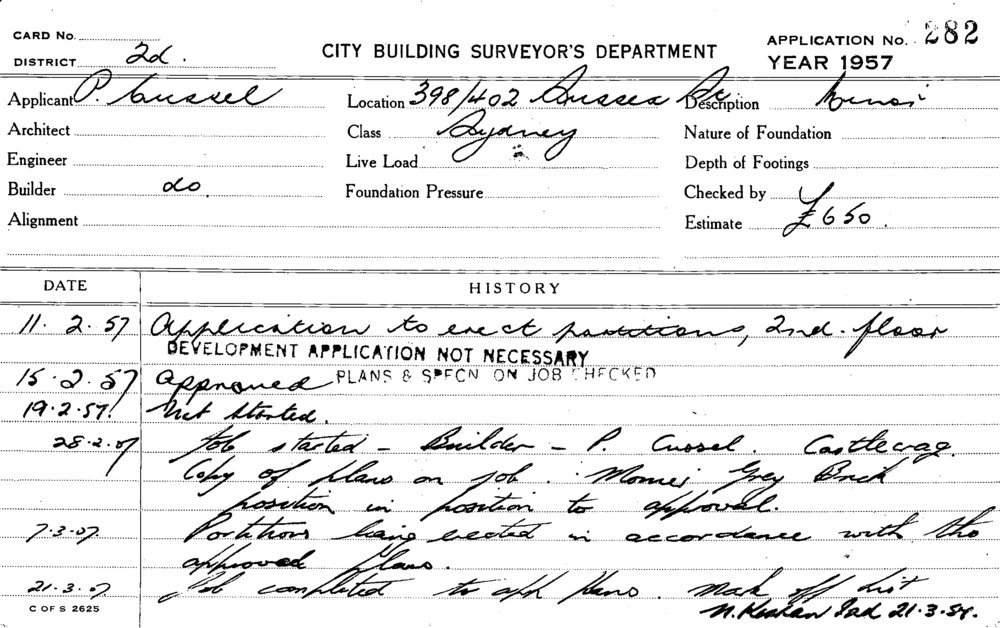 CARD No.
DISTRICT 2d.
CITY BUILDING SURVEYOR'S DEPARTMENT
APPLICATION No. 282
YEAR 1957
Applicant P. Cussel
Location 398/402 Sussex St
Description Minor
Architect
Class Sydney
Nature of Foundation
Engineer
Live Load
Depth of Footings
Builder do
Foundation Pressure
Checked by
Alignment
Estimate £650.
DATE HISTORY
11.2.57 Application to erect partitions, 2nd. floor
DEVELOPMENT APPLICATION NOT NECESSARY
15.2.57 Approved PLANS & SPECN ON JOB CHECKED
19.2.57. Not started.
28.2.57 Job started - Builder - P. Cussel. Castlecrag.
Copy of plans on job. Grey Brick
position in position to approval.
7.3.57. Partitions being erected in accordance with the
approved plans.
21.3.57 Job completed to app plans. Mark off list
21.3.57.
C OF S 2625